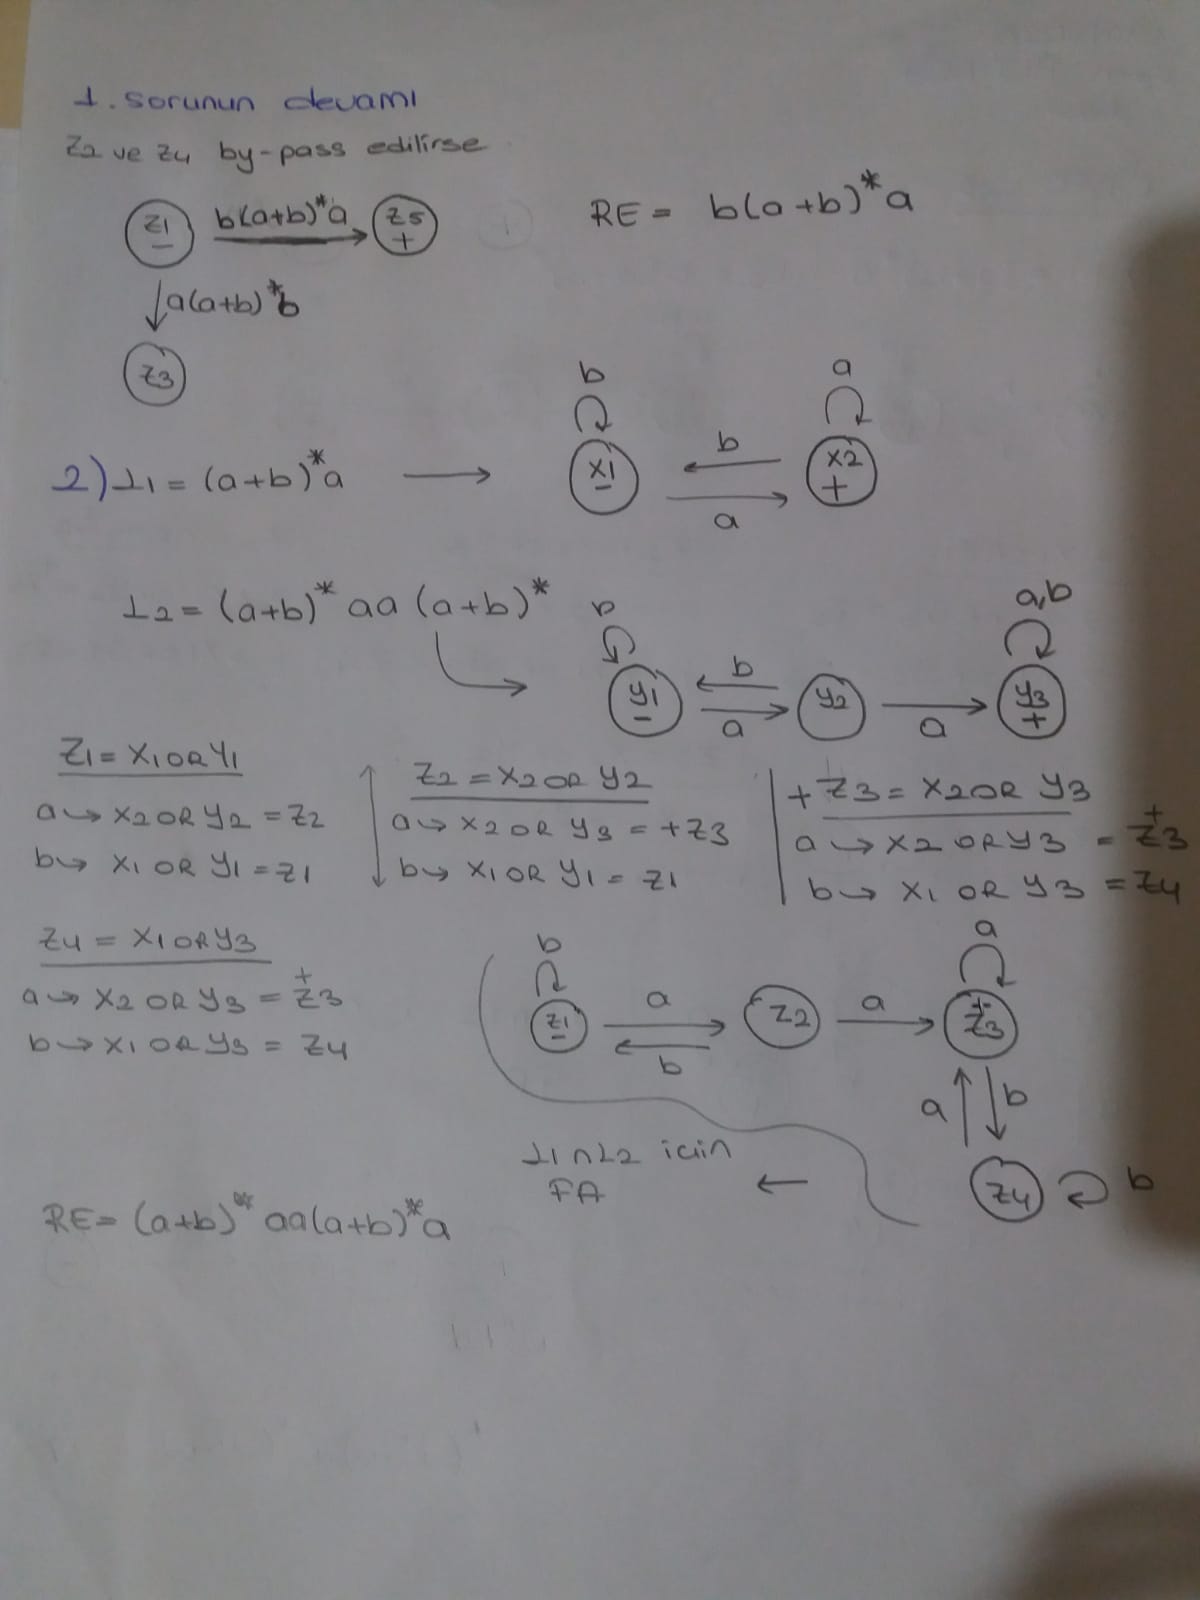 1. sorunun devamı
Z2 ve Z4 by-pass edilirse
Z1 - b(a+b)*a Z5 +
RE = b(a+b)*a
a(a+b)*b
Z3
b a
2) L1 = (a+b)*a → X1 - b a X2 +
L2 = (a+b)* aa (a+b)*
b a,b
y1 - b a y2 a y3 +
Z1 = X1 OR Y1
a → X2 OR Y2 = Z2
b → X1 OR Y1 = Z1
Z2 = X2 OR Y2
a → X2 OR Y3 = +Z3
b → X1 OR Y1 = Z1
+Z3 = X2 OR Y3
a → X2 OR Y3 = +Z3
b → X1 OR Y3 = Z4
Z4 = X1 OR Y3
a → X2 OR Y3 = +Z3
b → X1 OR Y3 = Z4
b a
Z1 - a b Z2 a +Z3
a b
Z4 b
L1∩L2 için
FA
RE = (a+b)* aa(a+b)*a